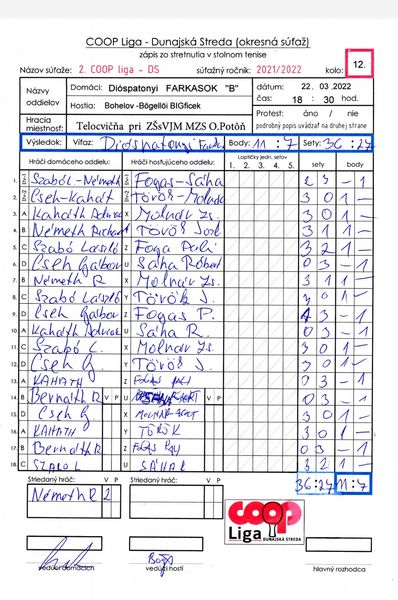 COOP Liga - Dunajská Streda (okresná súťaž)
zápis zo stretnutia v stolnom tenise
Názov súťaže: 2. COOP liga - DS súťažný ročník: 2021/2022 kolo: 12.
Názvy oddielov
Domáci: Dióspatonyi FARKASOK "B"
Hostia: Bohelov -Bögellői BIGficek
dátum: 22 . 03 .2022
čas: 18 : 30 hod.
Hracia miestnosť: Telocvičňa pri ZŠsVJM MZS O.Potôň
Protest: áno / nie
podrobný popis uvádzať na druhej strane
Výsledok: Víťaz: Dióspatonyi Body: 11 : 7 36 : 27
Hráči domáceho oddielu: Hráči hosťujúceho oddielu: Loptičky jedn. setov sety body
1. 2. 3. 4. 5.
1. Szabó L - Németh Fogas - Sáha 2 3 - 1
2. Cseh - Kahath Török - Molnár 3 0 1 -
3. A Kahath X Molnár Zs. 3 0 1 -
4. B Németh Richard Y Török 3 1 1 -
5. C Szabó László Z 3 2 1 -
6. D Cseh U Sáha Róbert 0 3 - 1
7. B Németh R X Molnár Zs. 3 1 1 -
8. C Szabó László Y Török J. 3 0 1 -
9. D Cseh Z Fogas P. 3 - 1
10. A Kahath U Sáha R. 0 3 - 1
11. C Szabó L. X Molnár Zs. 3 0 1 -
12. D Cseh G Y Török J. 3 0 1 -
13. A KAHATH Z 0 3 - 1
14. B Bernáth R V P U V P 0 3 - 1
15. D Cseh G X 3 0 1 -
16. A KAHATH Y TÖRÖK 3 0 1 -
17. B Bernáth R Z 0 3 - 1
18. C SZABO L U SÁHA R 3 2 1 -
Striedaný hráč: V P Striedaný hráč: V P 36:27 11:7
Németh R 2
COOP
Liga DUNAJSKÁ STREDA
vedúci domácich vedúci hostí hlavný rozhodca